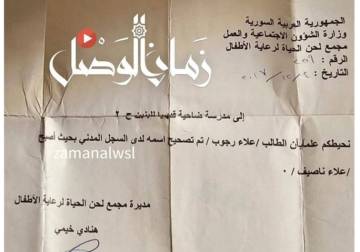 الجمهورية العربية السورية
وزارة الشؤون الاجتماعية والعمل
مجمع لحن الحياة لرعاية الأطفال
الرقم :
التاريخ :
زمان الوصل
إلى مدرسة ضاحية قدسيا للبنين ح ٢
نحيطكم علما بأن الطالب /علاء رجوب / تم تصحيح اسمه لدى السجل المدني بحيث أصبح
/علاء ناصيف / ٠
zamanalwsl
مديرة مجمع لحن الحياة لرعاية الأطفال
هنادي خيمي